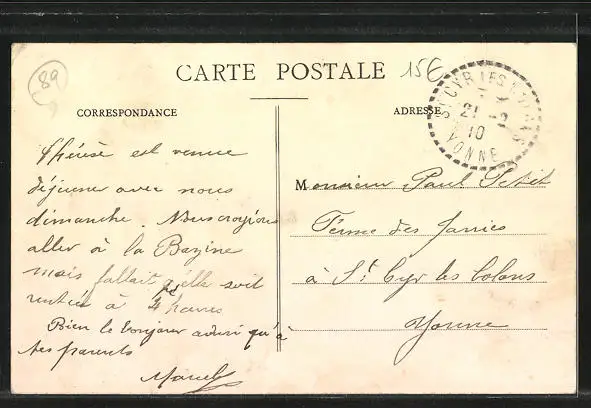 89
CARTE POSTALE
15€
CORRESPONDANCE
ADRESSE
ST CYR LES COLONS
21 -2
10
YONNE
Thérèse est venue
déjeuner avec nous
dimanche. Nous croyions
aller à la Bazine
mais fallait qu'elle soit
rentrée à 4 heures
Bien le bonjour ainsi qu'à
tes parents
Marcel
Monsieur Paul Petit
Ferme des Jarries
à St Cyr les Colons
Yonne